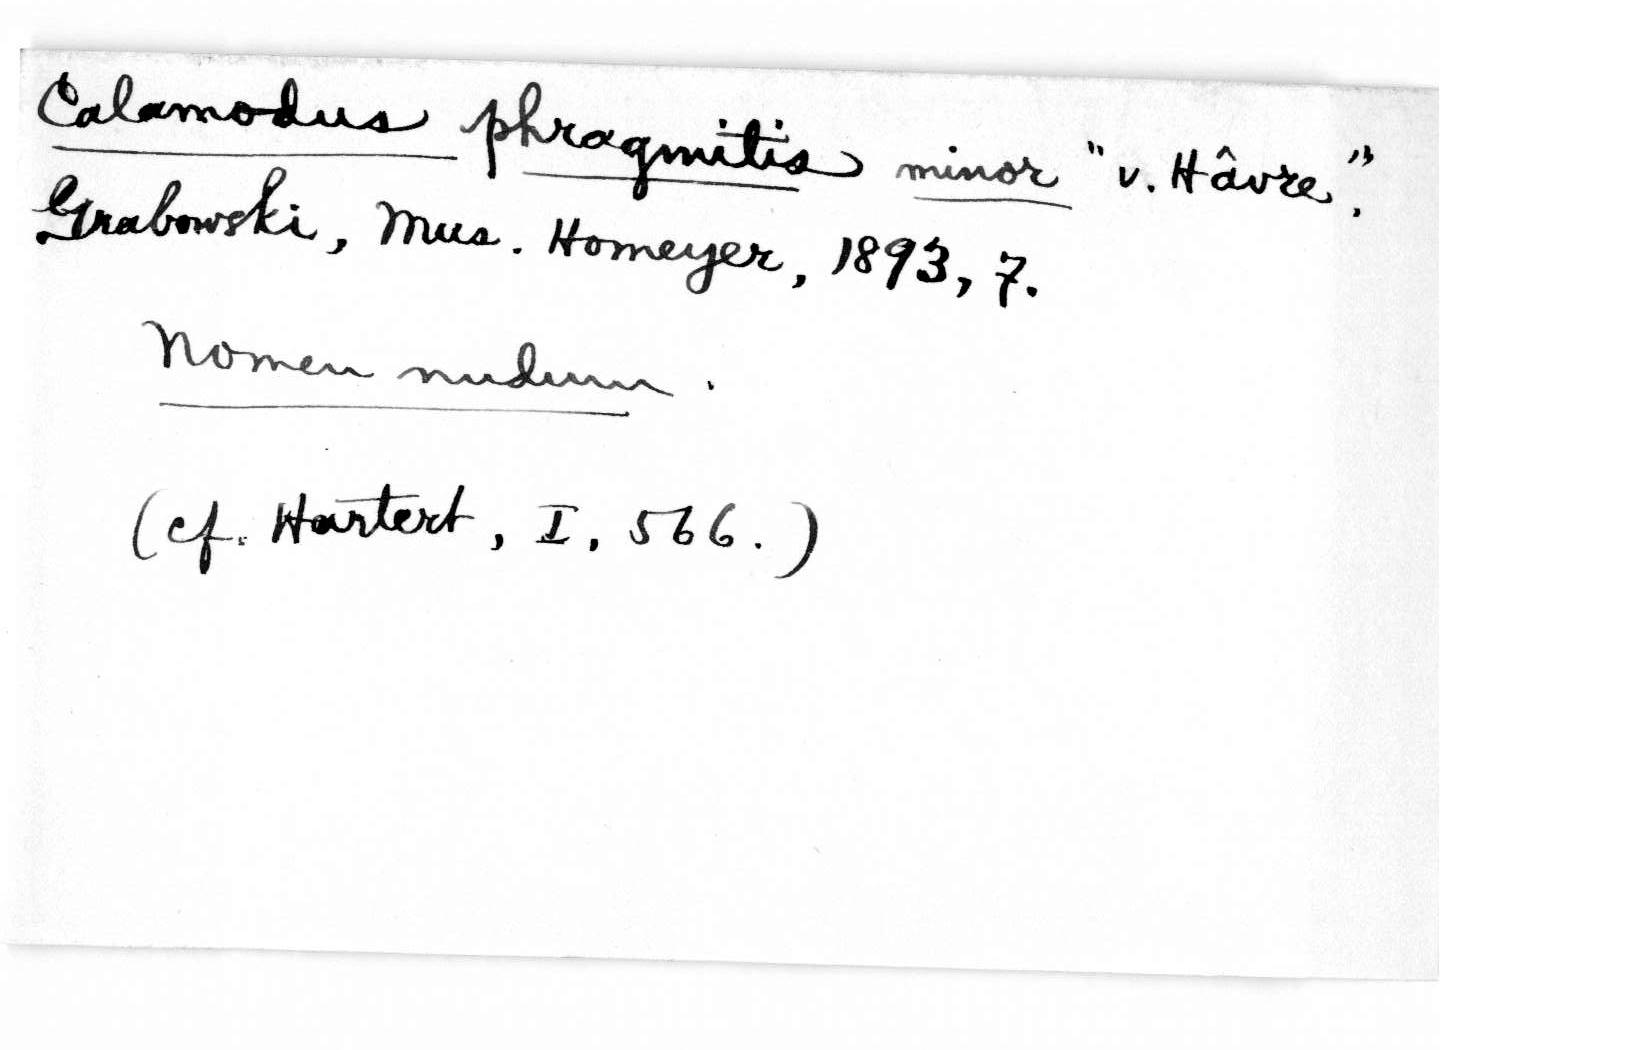 Calamodus phragmitis minor "v. Hâvre".
Grabowski, Mus. Homeyer, 1893, 7.
Nomen nudum.
(cf. Hartert, I, 566.)